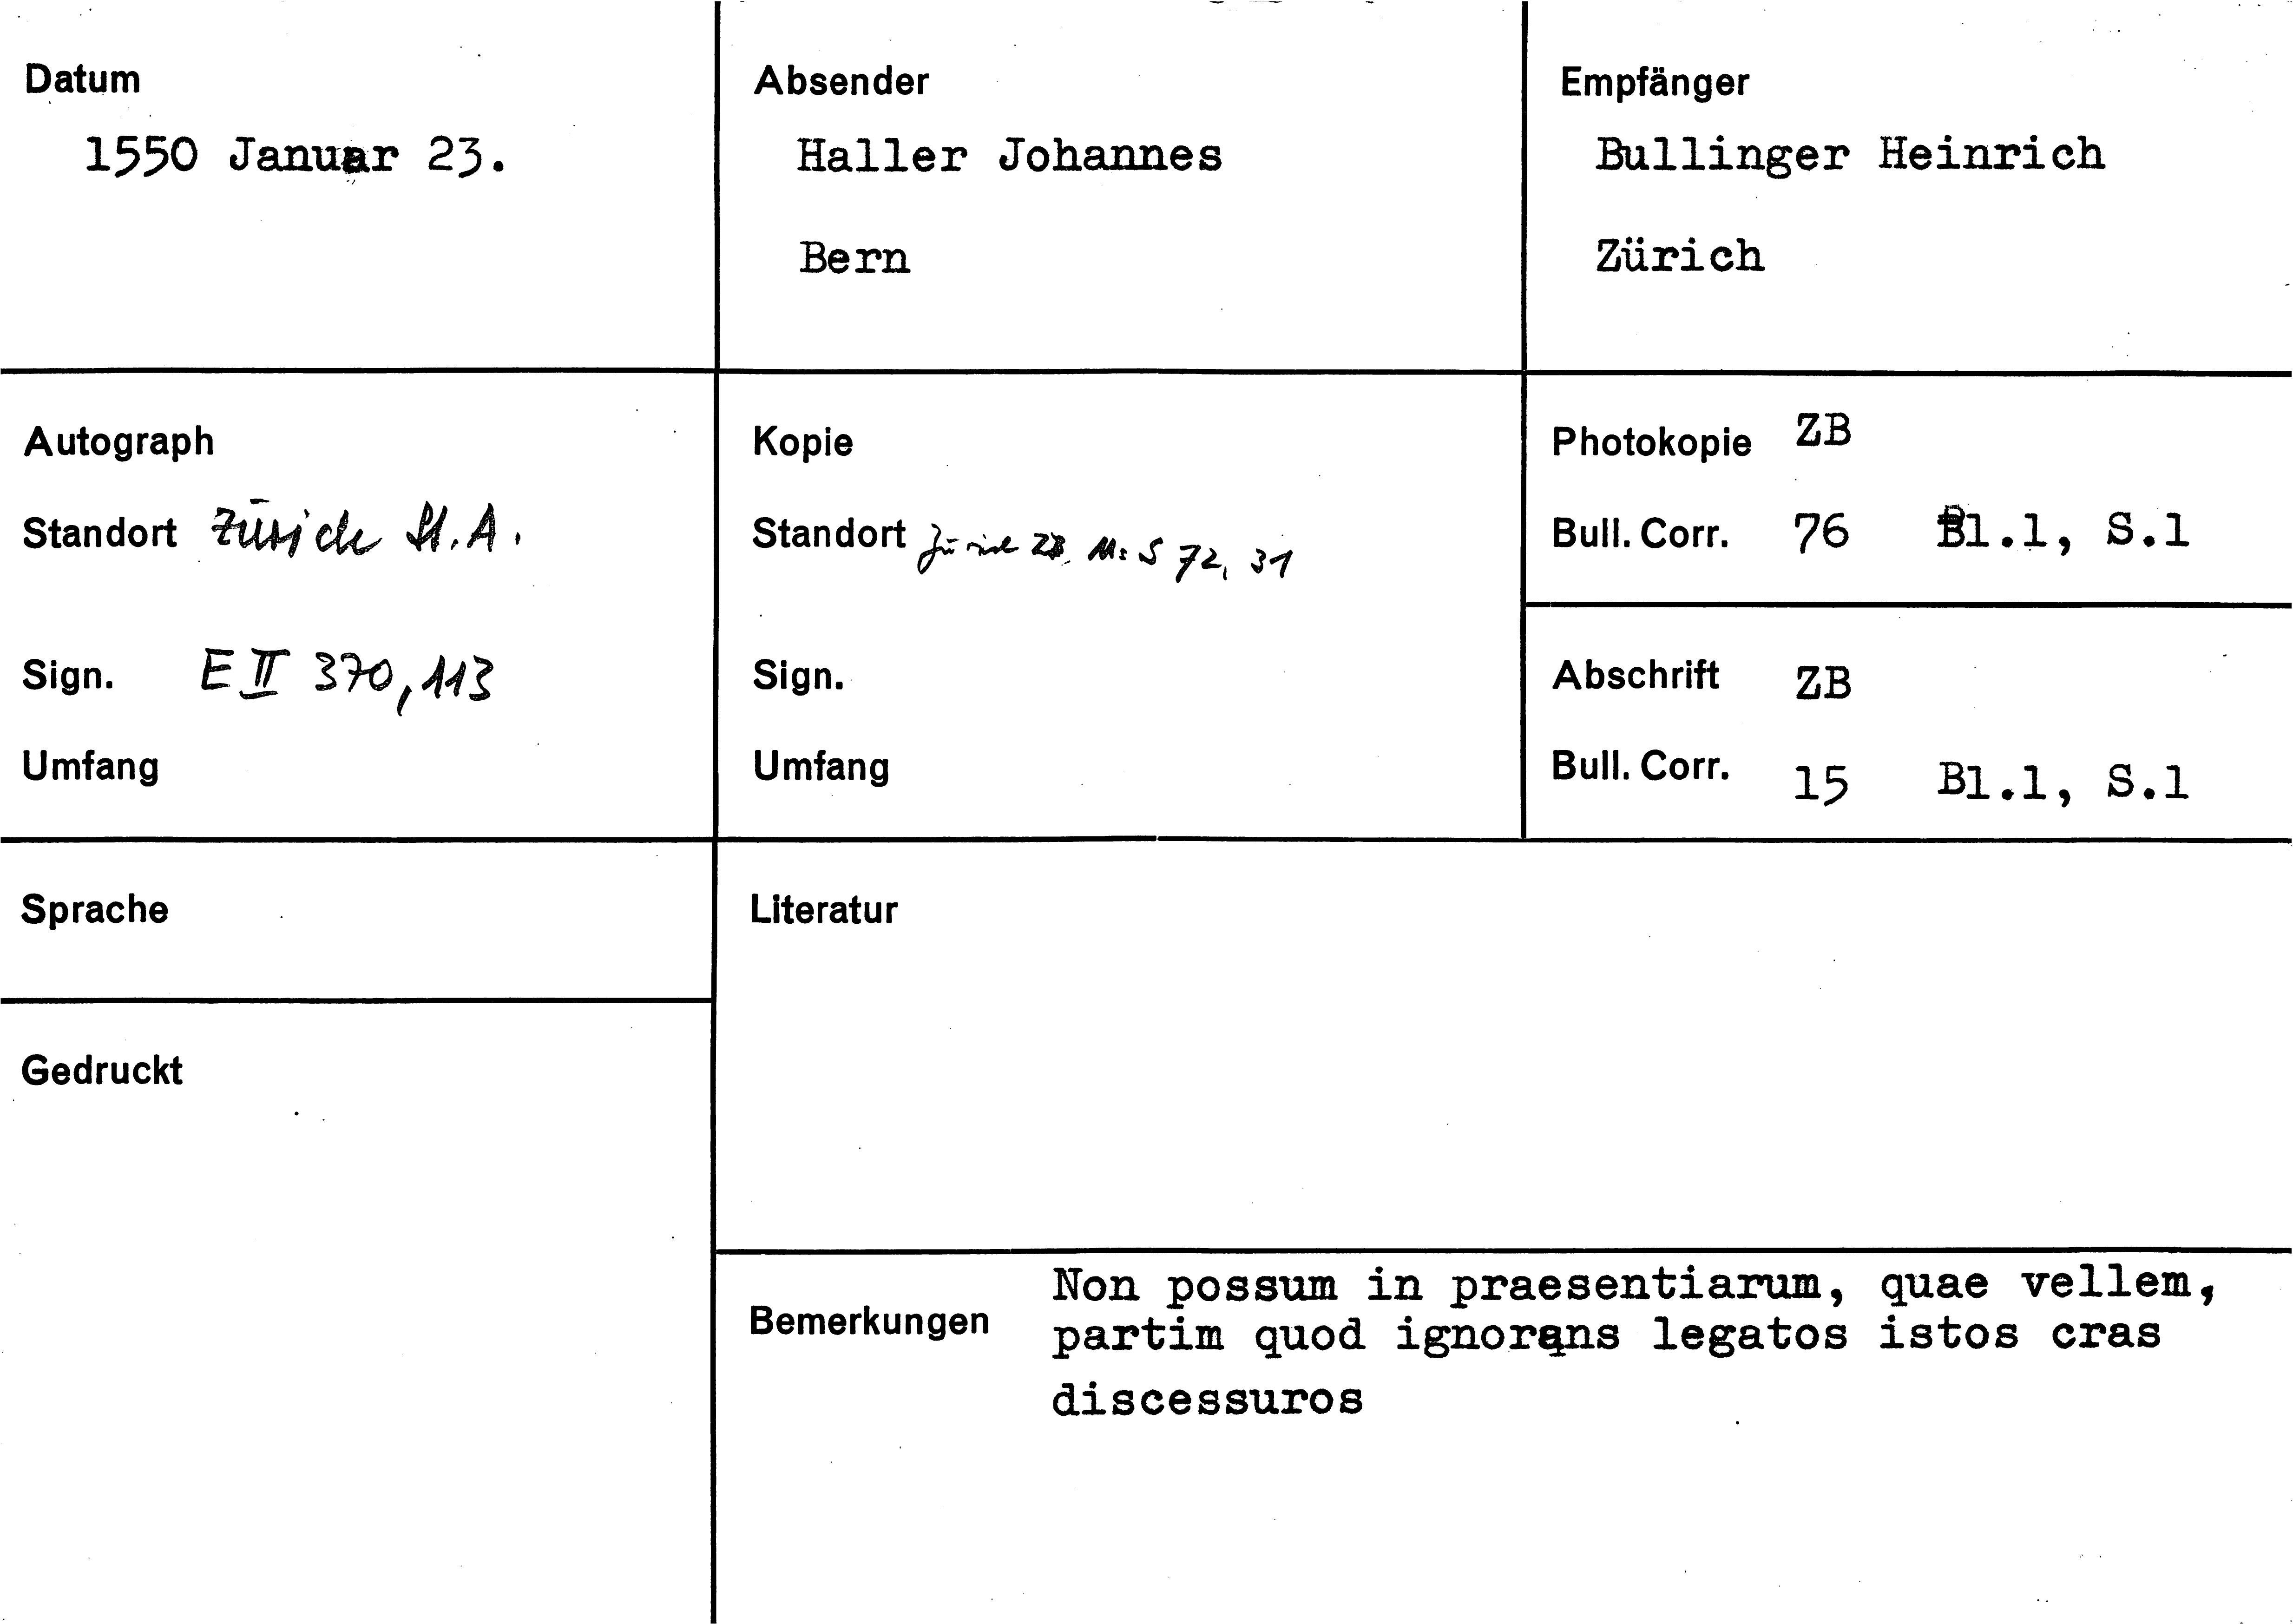 Datum
1550 Januar 23.
Absender
Haller Johannes
Bern
Empfänger
Bullinger Heinrich
Zürich
Autograph
Standort Zürich St.A.
Sign. E II 370, 113
Umfang
Kopie
Standort Zürich ZB. Ms S 72, 31
Sign.
Umfang
Photokopie ZB
Bull. Corr. 76 Bl.1, S.1
Abschrift ZB
Bull. Corr. 15 Bl.1, S.1
Sprache
Literatur
Gedruckt
Bemerkungen
Non possum in praesentiarum, quae vellem,
partim quod ignorans legatos istos cras
discessuros